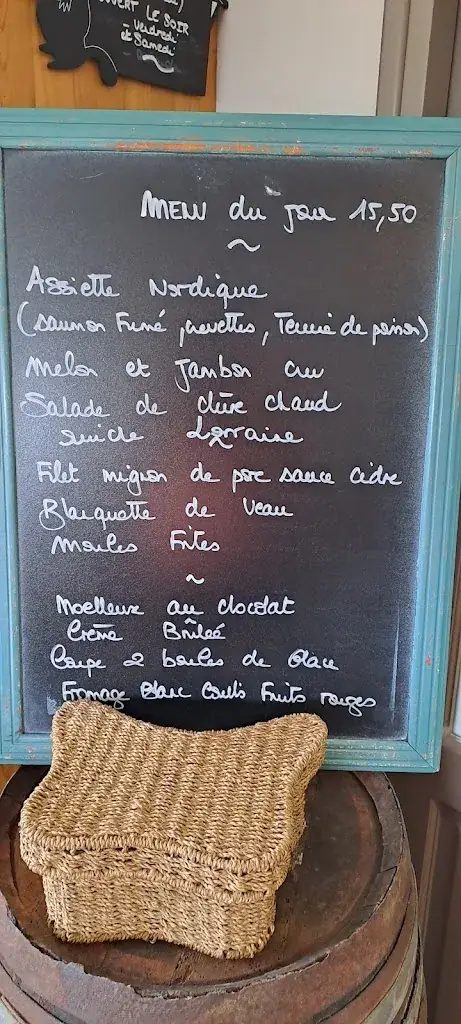 OUVERT LE SOIR
Vendredi
et Samedi
MENU du jour 15,50
~
Assiette Nordique
(saumon Fumé, crevettes, Terrine de poisson)
Melon et Jambon cru
Salade de chèvre chaud
quiche Lorraine
~
Filet mignon de porc sauce cidre
Blanquette de Veau
Moules Frites
~
Moelleux au chocolat
Crème Brûleé
Coupe 2 boules de glace
Fromage Blanc Coulis Fruits rouges